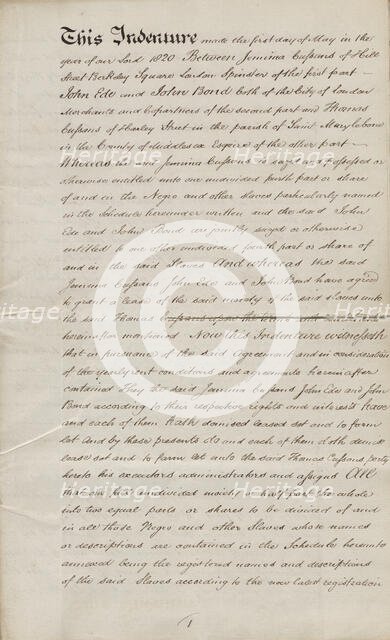 This Indenture made the first day of May in the
year of our Lord 1820 Between Jemima Cussans of Hill
Street Berkley Square London Spinster of the first part
John Ede and John Bond both of the City of London
Merchants and Copartners of the second part and Thomas
Cussans of Harley Street in the parish of Saint Marylebone
in the County of Middlesex Esquire of the other part
Whereas the said Jemima Cussans is seized and possessed or
otherwise entitled unto one undivided fourth part or share
of and in the Negro and other slaves particularly named
in the Schedule hereunder written and the said John
Ede and John Bond are jointly seized or otherwise
entitled to one other undivided fourth part or share of
and in the said Slaves And whereas the said
Jemima Cussans John Ede and John Bond have agreed
to grant a lease of the said moiety of the said slaves unto
the said Thomas Cussans upon the terms and
hereinafter mentioned Now this Indenture witnesseth
that in pursuance of the said Agreement and in consideration
of the yearly rent conditions and agreements hereinafter
contained They the said Jemima Cussans John Ede and John
Bond according to their respective rights and interests have
and each of them Hath demised leased set and to farm
let And by these presents do and each of them doth demise
lease set and to farm let unto the said Thomas Cussans party
hereto his executors administrators and assigns All
that one full undivided moiety or half part the whole
into two equal parts or shares to be divided of and
in all those Negro and other Slaves whose names
or descriptions are contained in the Schedule hereunto
annexed being the registered names and descriptions
of the said Slaves according to the now latest registration
1
Heritage
Heritage
Heritage
Heritage
Heritage
Heritage